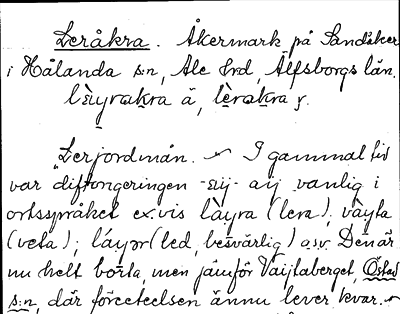 Leråkra. Åkermark på Sandåker
i Hålanda s:n, Ale hrd, Älfsborgs län.
lèiyrakra ä, lèrakra y.
"Lerjordmån. ~ I gammal tid
var diftongeringen -eij- aij vanlig i
ortsspråket ex.vis làyra (lera), vàyta
(veta); láyər (led, besvärlig) o.s.v. Den är
nu helt borta, men jämför Vaijtaberget, Östad
s:n, där företeelsen ännu lever kvar. ~